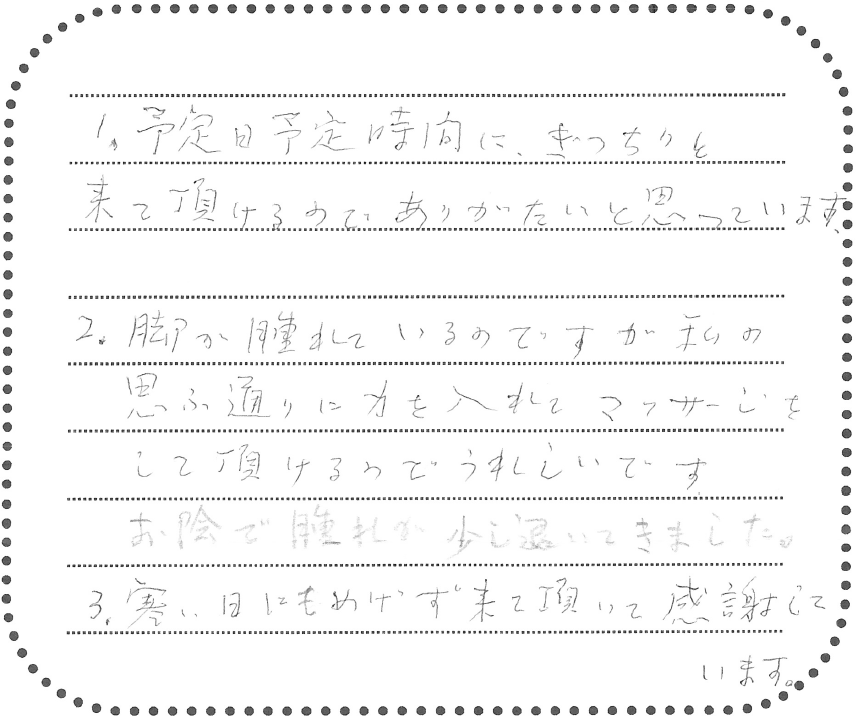 1. 予定日予定時間に、きっちりと
来て頂けるので ありがたいと思っています。
2. 脚が腫れているのですが私の
思ふ通りに力を入れて マッサージを
して頂けるのでうれしいです
お陰で腫れが少し退いてきました。
3. 寒い日にもめげず来て頂いて感謝して
います。